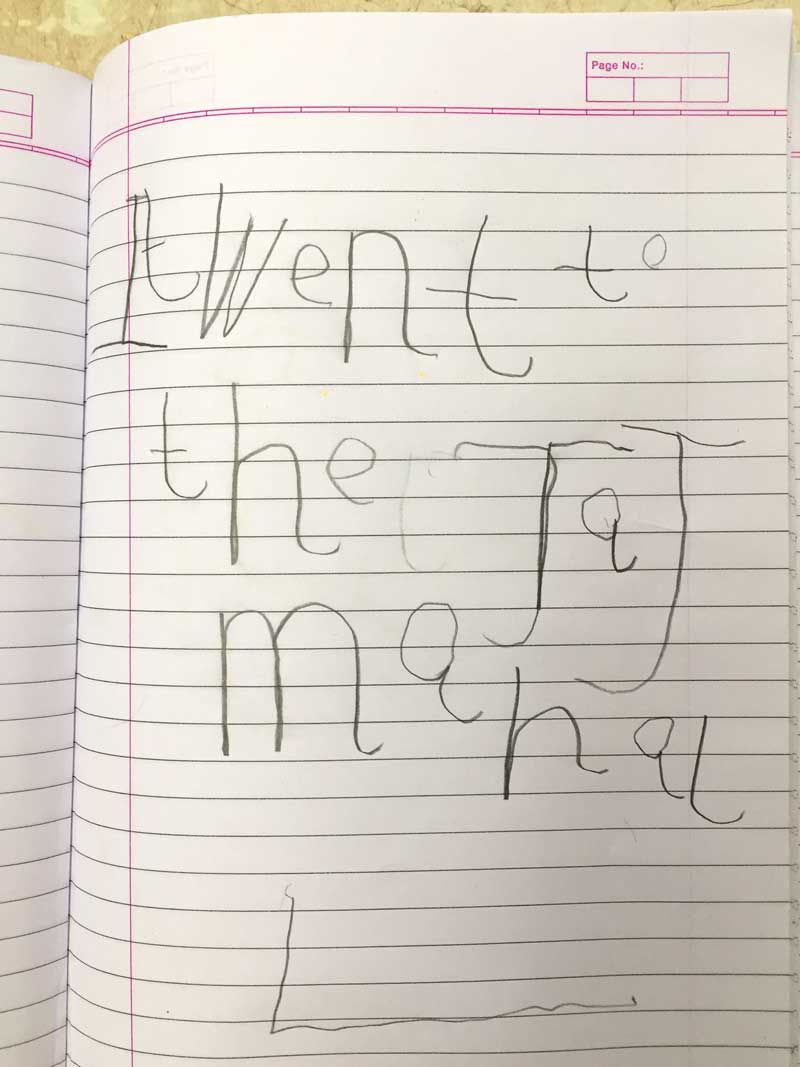 Page No.:
It Went to
the JaJ
mahal
L